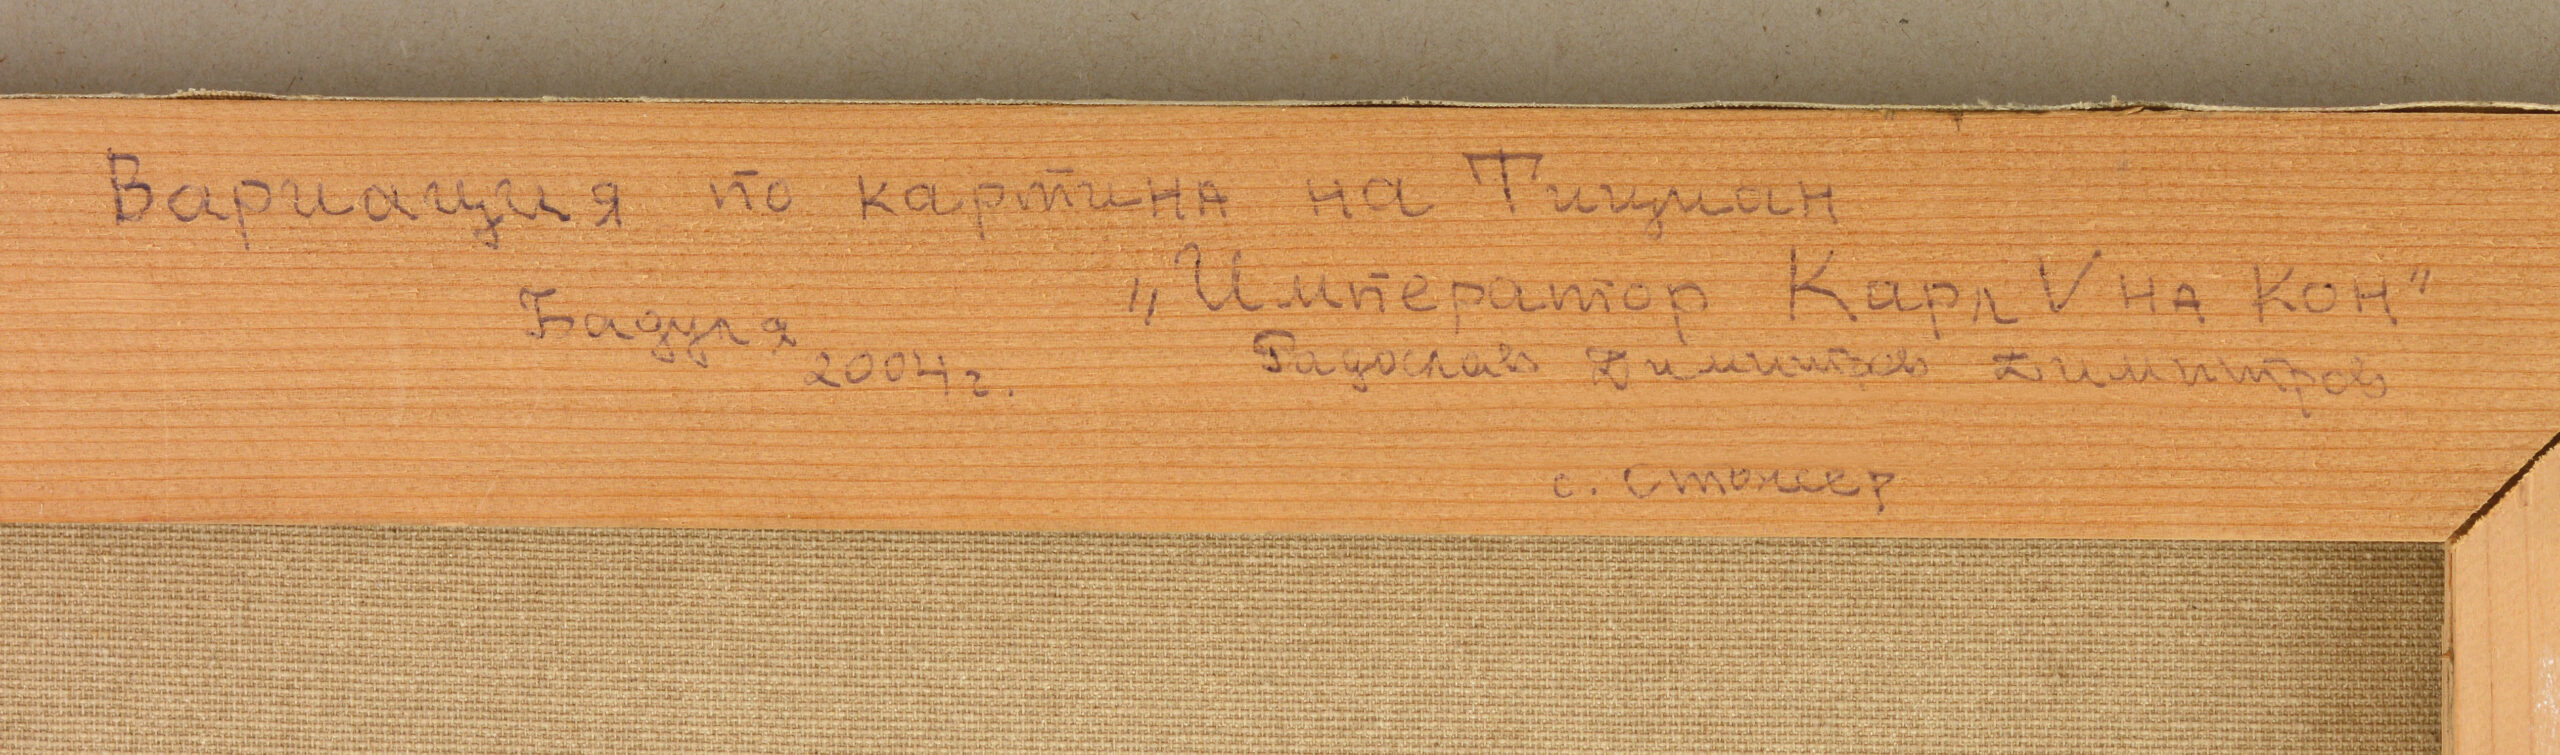 Вариация по картина на Тициан
„Император Карл V на кон"
Бадуля
2004 г.
Радослав Димитров Димитров
с. Стожер